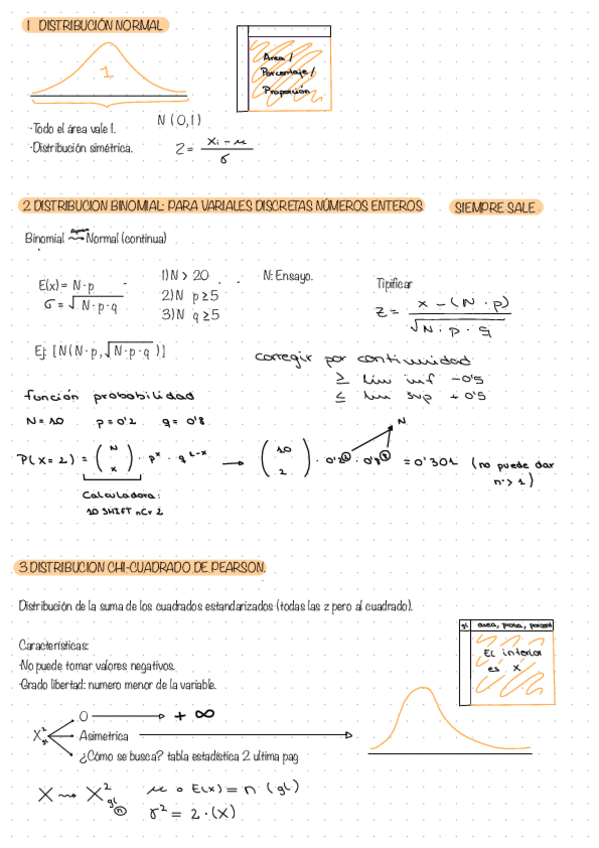 1 DISTRIBUCIÓN NORMAL
1
Area /
Porcentaje /
Proporción
·Todo el área vale 1.
·Distribución simétrica.
N(0,1)
Z = (xi - μ) / σ
2 DISTRIBUCION BINOMIAL: PARA VARIALES DISCRETAS NÚMEROS ENTEROS
SIEMPRE SALE
Binomial → Normal (continua)
E(x) = N·p
σ = √N·p·q
1) N > 20
2) N p ≥ 5
3) N q ≥ 5
N: Ensayo.
Tipificar
Z = (x - (N·p)) / √N·p·q
Ej: [N(N·p, √N·p·q)]
corregir por continuidad
≥ lim inf -0'5
≤ lim sup +0'5
función probabilidad
N = 10 p = 0'2 q = 0'8
P(X = 2) = (N x) · p^x · q^(1-x) → (10 2) · 0'2^2 · 0'8^8 = 0'301 (no puede dar
n > 1)
N
Calculadora:
10 SHIFT nCr 2
3 DISTRIBUCION CHI-CUADRADO DE PEARSON.
Distribución de la suma de los cuadrados estandarizados (todas las z pero al cuadrado).
gl area, proba, porcent
El interior
es x
Características:
·No puede tomar valores negativos.
·Grado libertad: numero menor de la variable.
X²gl
0 → +∞
Asimetrica
¿Cómo se busca? tabla estadistica 2 ultima pag
X → X²gl n
μ o E(x) = n (gl)
σ² = 2·(X)